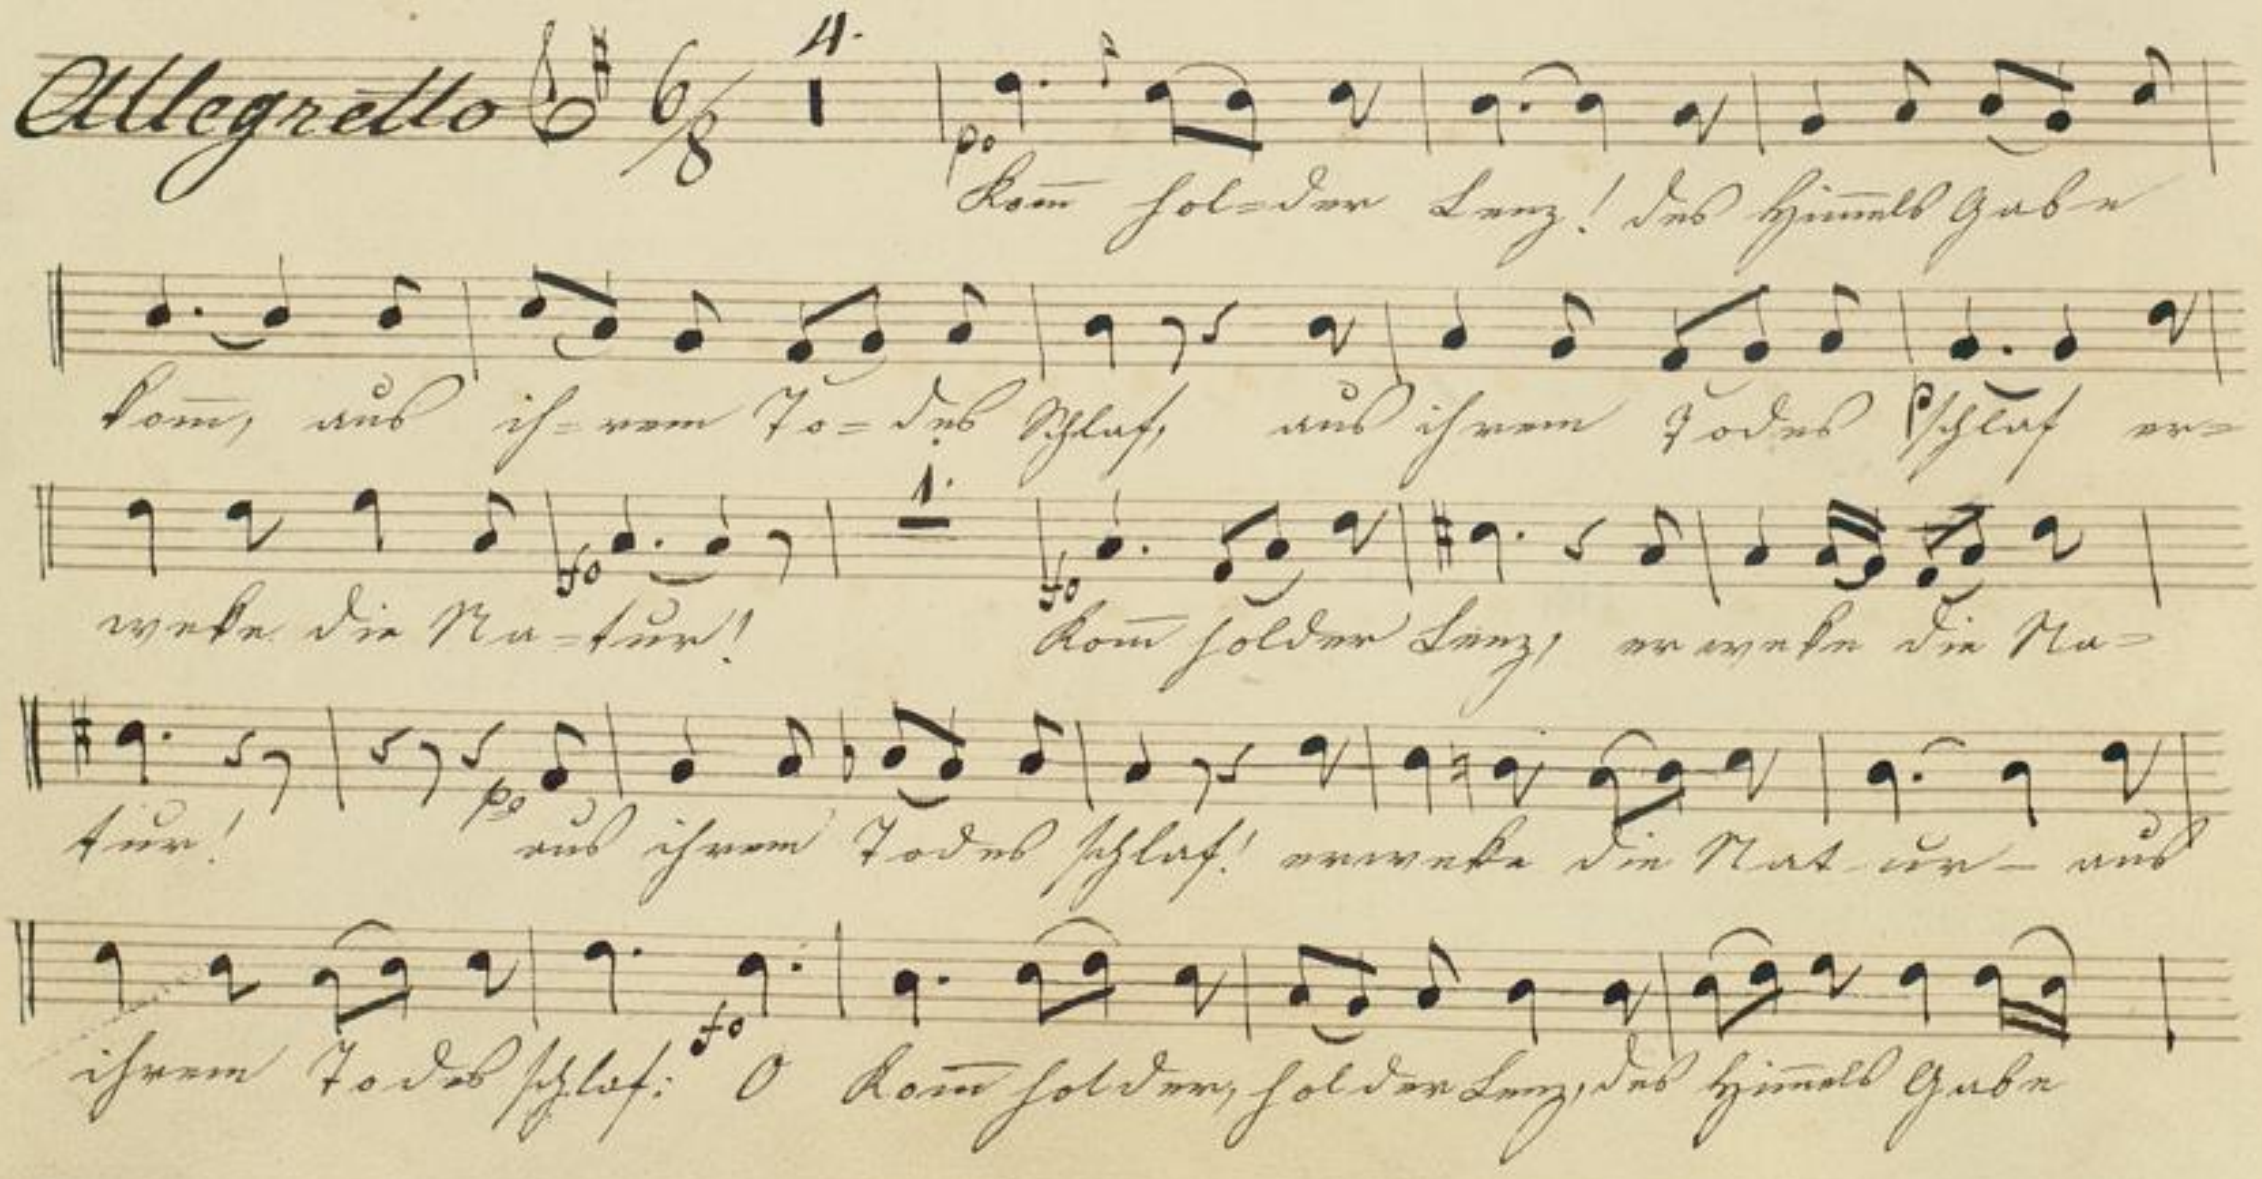 Allegretto 6/8 4.
po
Kom̅ hol=der Lenz! des Him̅els Gabe
kom̅, aus ih=rem To=des Schlaf, aus ihrem Todes schlaf er=
1.
fo fo
weke die Na=tur! Kom̅ holder Lenz, erweke die Na=
po
tur! aus ihrem Todes schlaf! erweke die Nat-ur- aus
fo
ihrem Todes schlaf: O Kom̅ holder, holder Lenz, des Him̅els Gabe